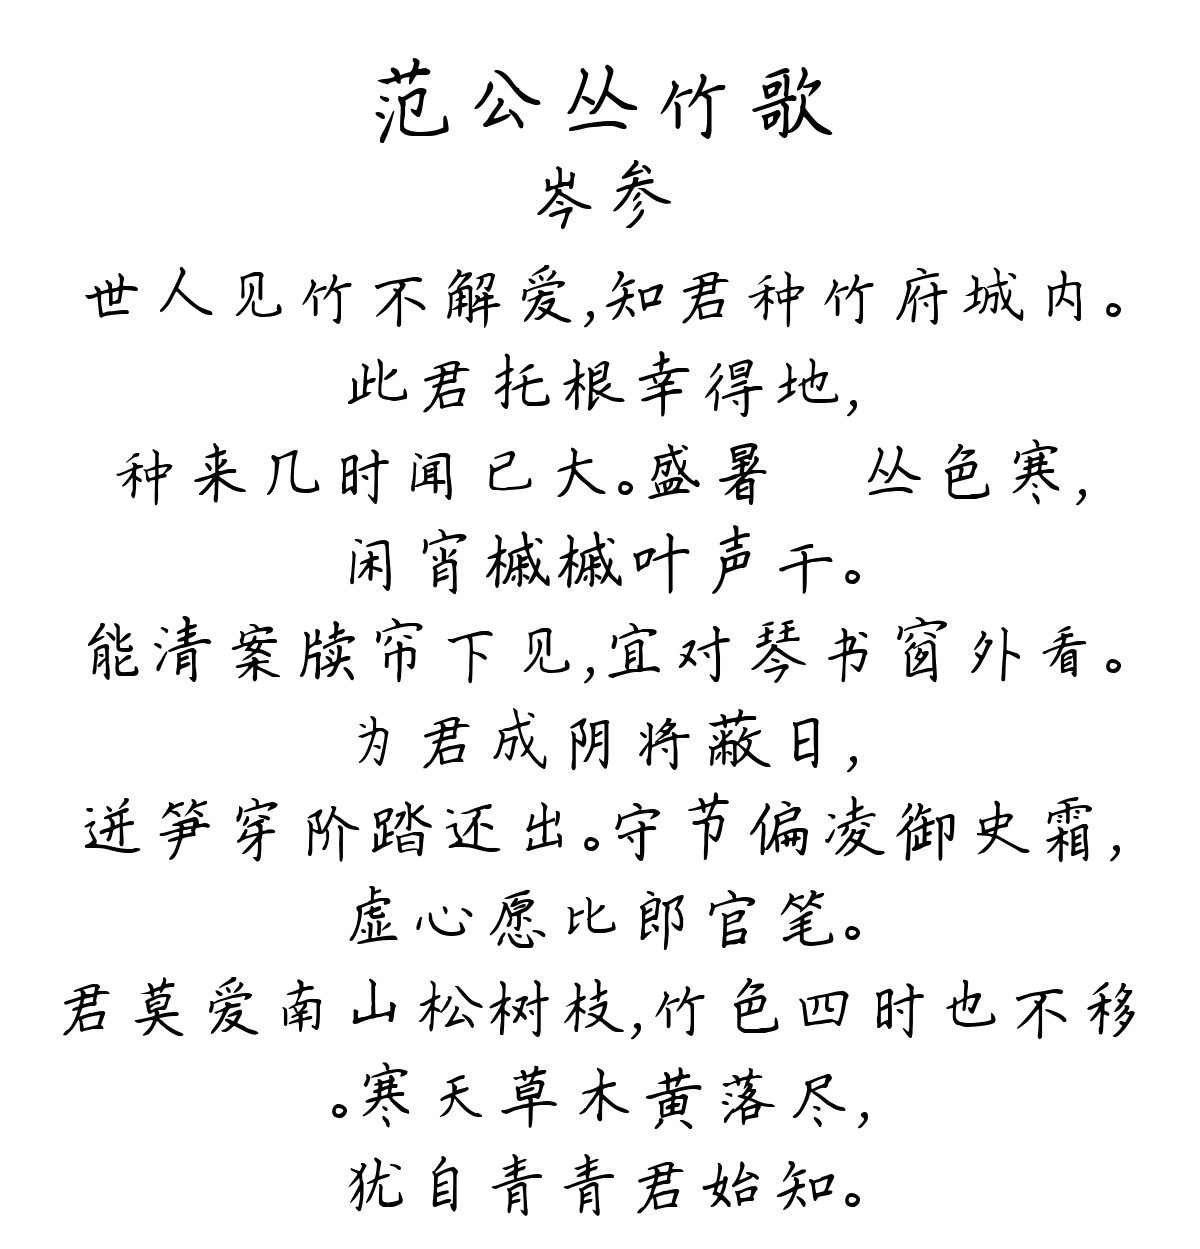 范公丛竹歌
岑参
世人见竹不解爱,知君种竹府城内。
此君托根幸得地,
种来几时闻已大。盛暑 丛色寒,
闲宵槭槭叶声干。
能清案牍帘下见,宜对琴书窗外看。
为君成阴将蔽日,
迸笋穿阶踏还出。守节偏凌御史霜,
虚心愿比郎官笔。
君莫爱南山松树枝,竹色四时也不移
。寒天草木黄落尽,
犹自青青君始知。